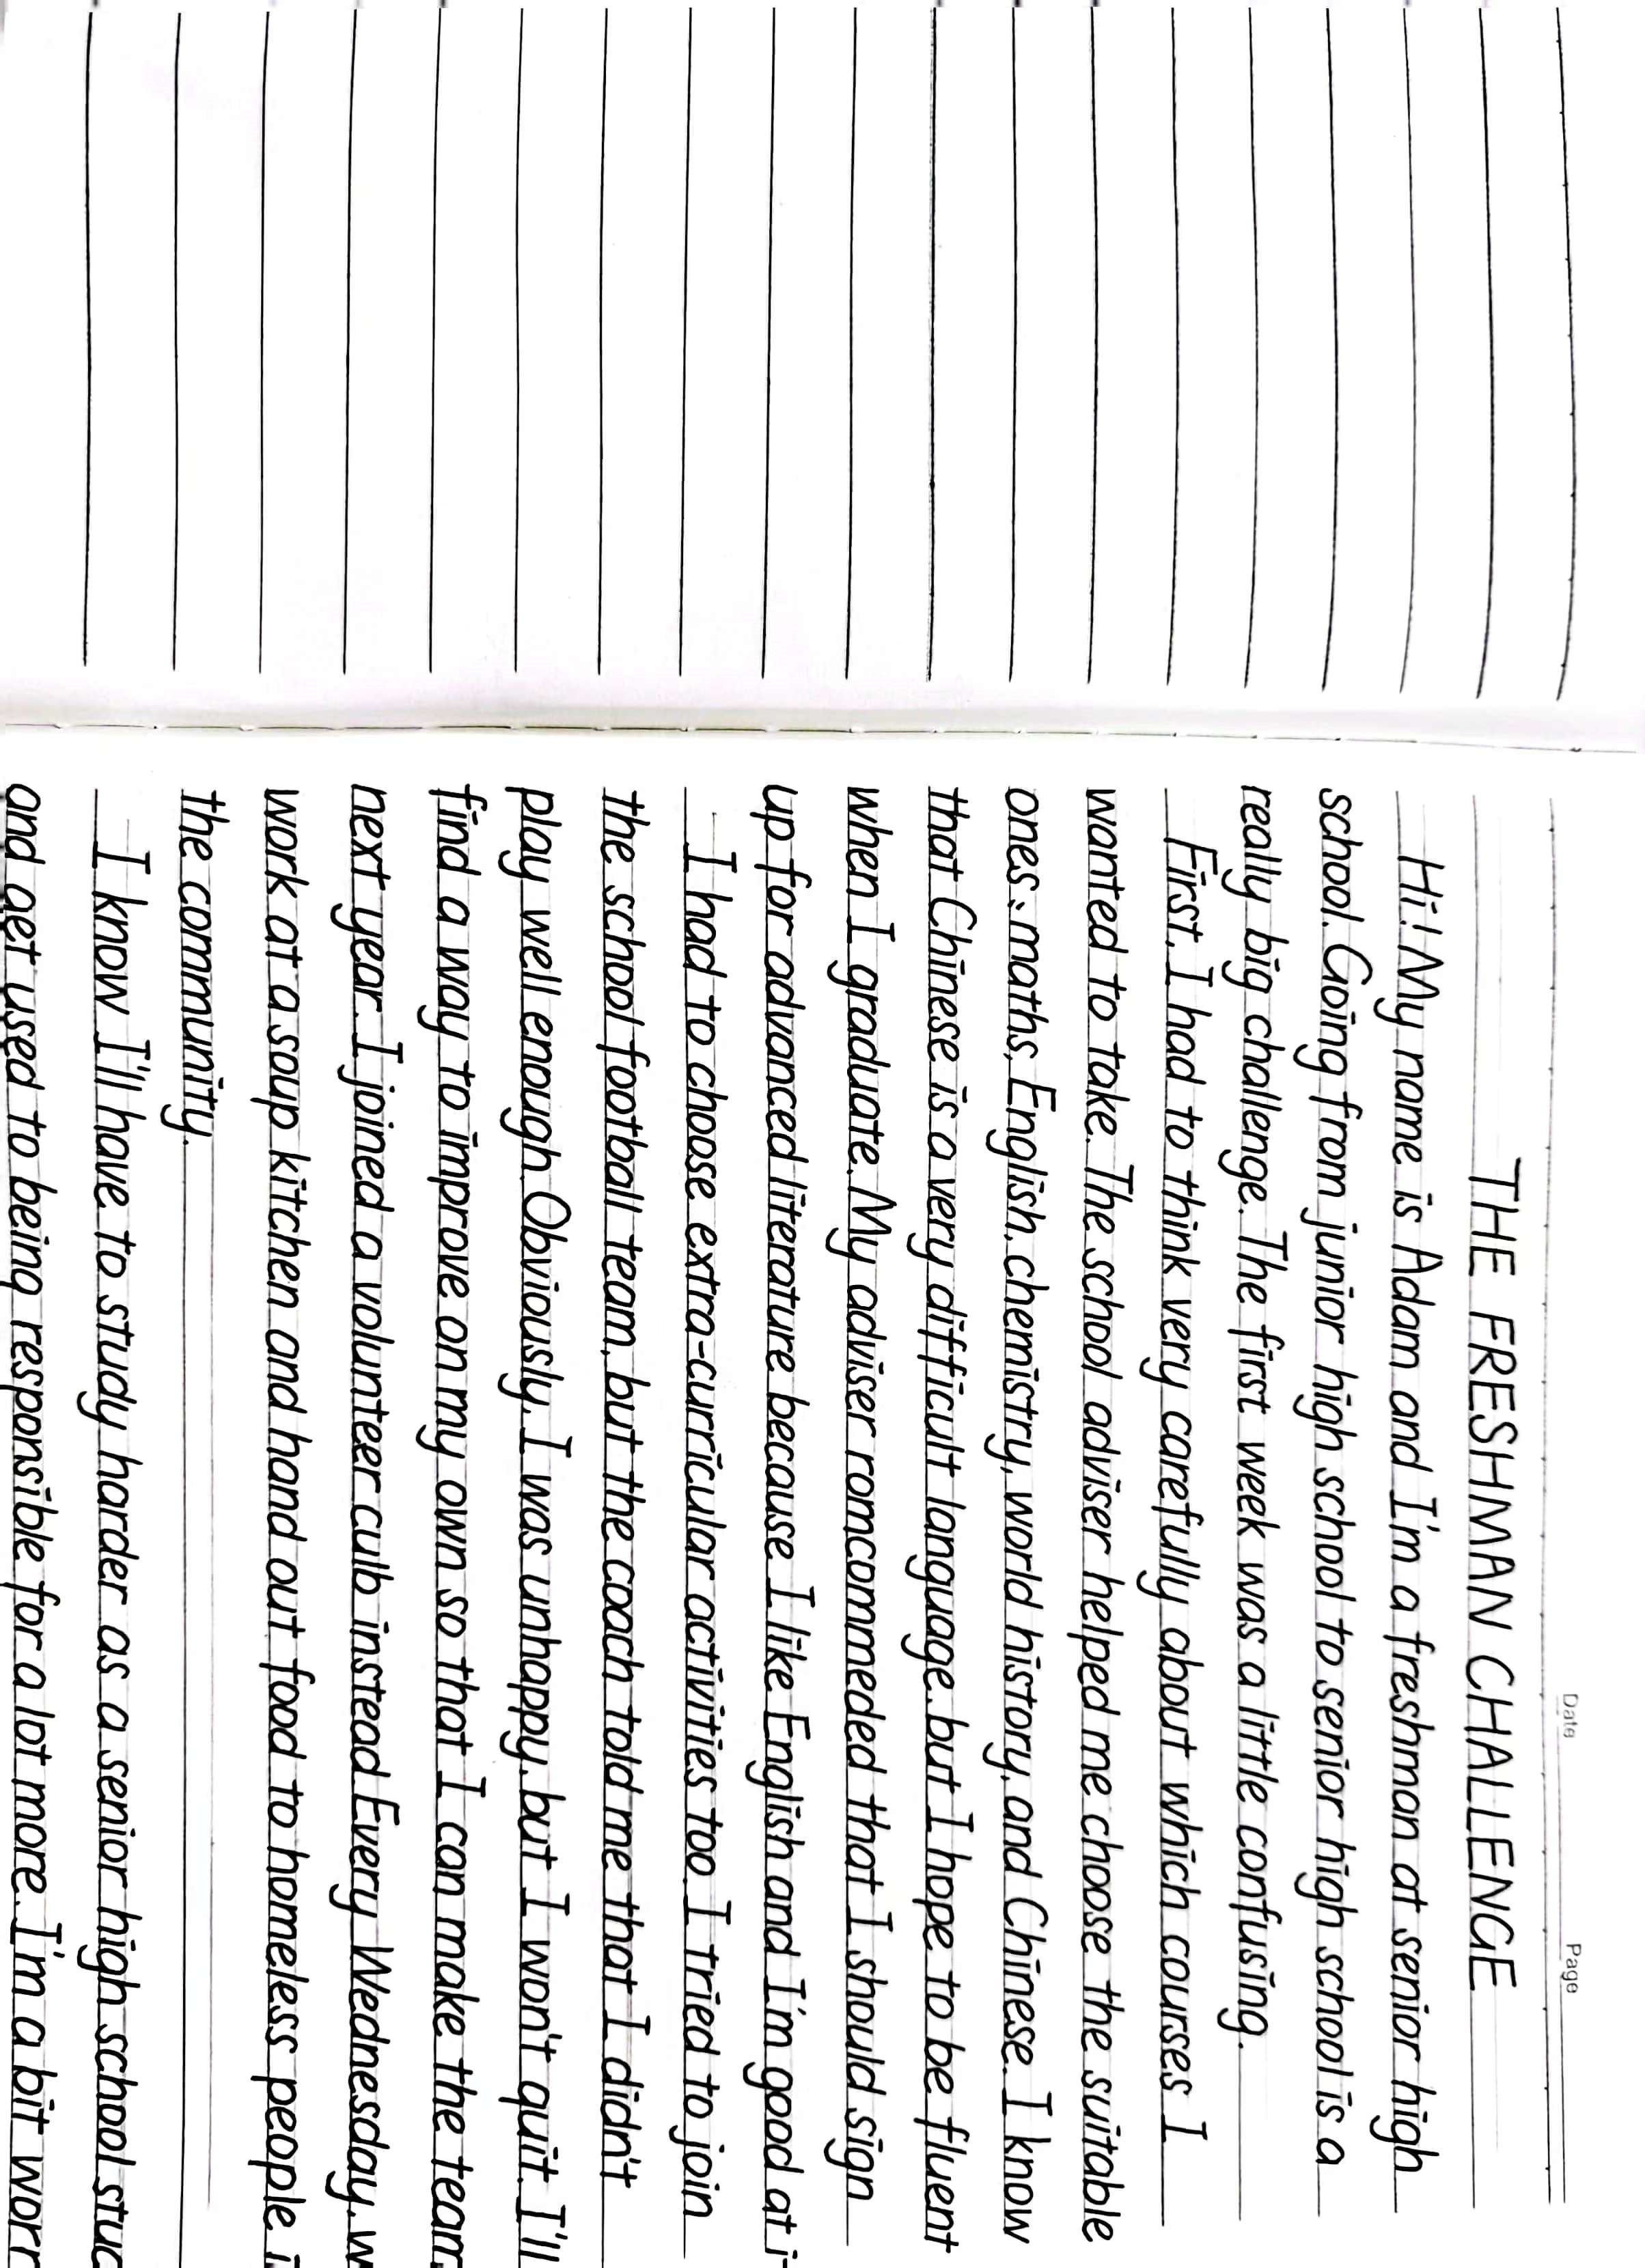 Date Page
THE FRESHMAN CHALLENGE
Hi! My name is Adam and I'm a freshman at senior high
school. Going from junior high school to senior high school is a
really big challenge. The first week was a little confusing.
First, I had to think very carefully about which courses I
wanted to take. The school adviser helped me choose the suitable
ones: maths, English, chemistry, world history, and Chinese. I know
that Chinese is a very difficult language, but I hope to be fluent
when I graduate. My adviser romcommeded that I should sign
up for advanced literature because I like English and I'm good at
I had to choose extra-curricular activities too. I tried to join
the school football team, but the coach told me that I didn't
play well enough. Obviously, I was unhappy, but I won't quit. I'll
find a way to improve on my own so that I can make the team
next year. I joined a volunteer culb instead. Every Wednesday, w
work at a soup kitchen and hand out food to homeless people i
the community.
I know I'll have to study harder as a senior high school stud
and get used to being responsible for a lot more. I'm a bit worr